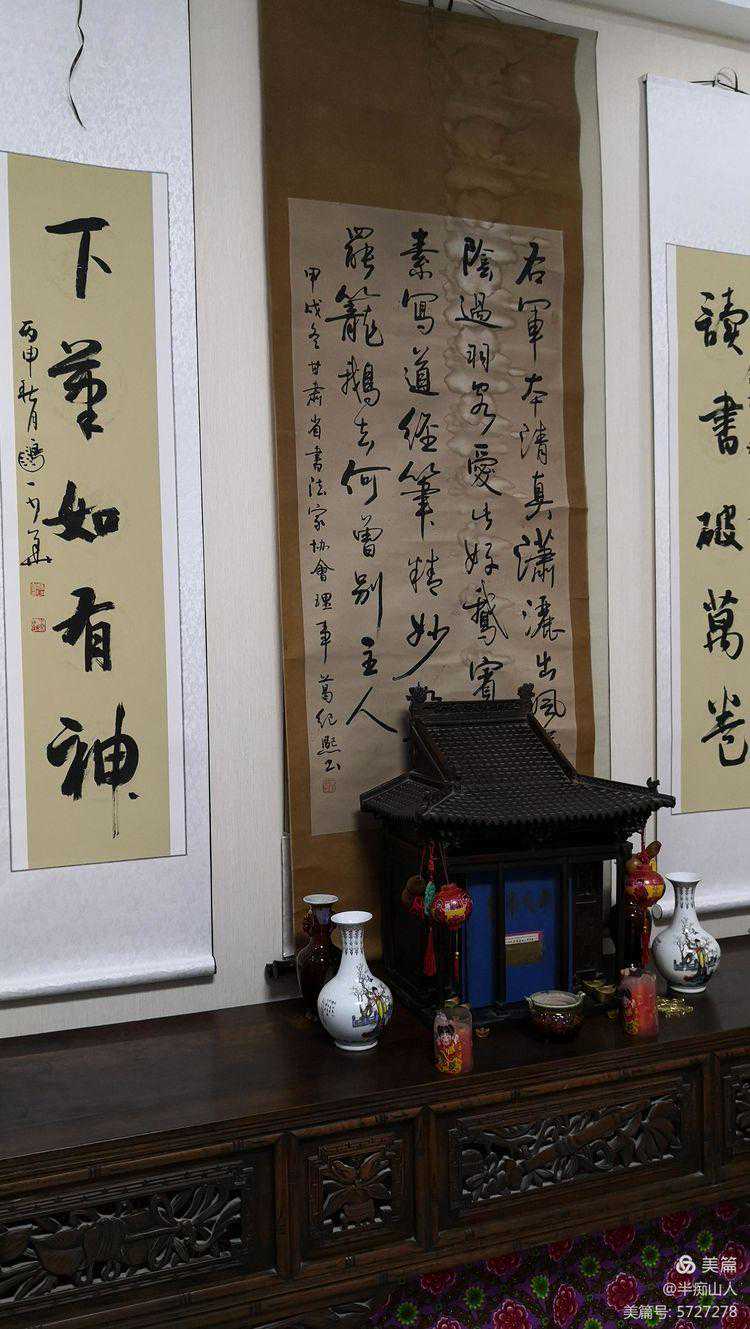 讀書破萬卷
右軍本清真瀟灑出風
陰過羽客愛此好鵝賓
素寫道經筆精妙
罷籠鵝去何曾別主人
甲戌冬甘肅省書法家協會理事葛纪熙书
下筆如有神
丙申秋月
美篇
@半痴山人
美篇号: 5727278